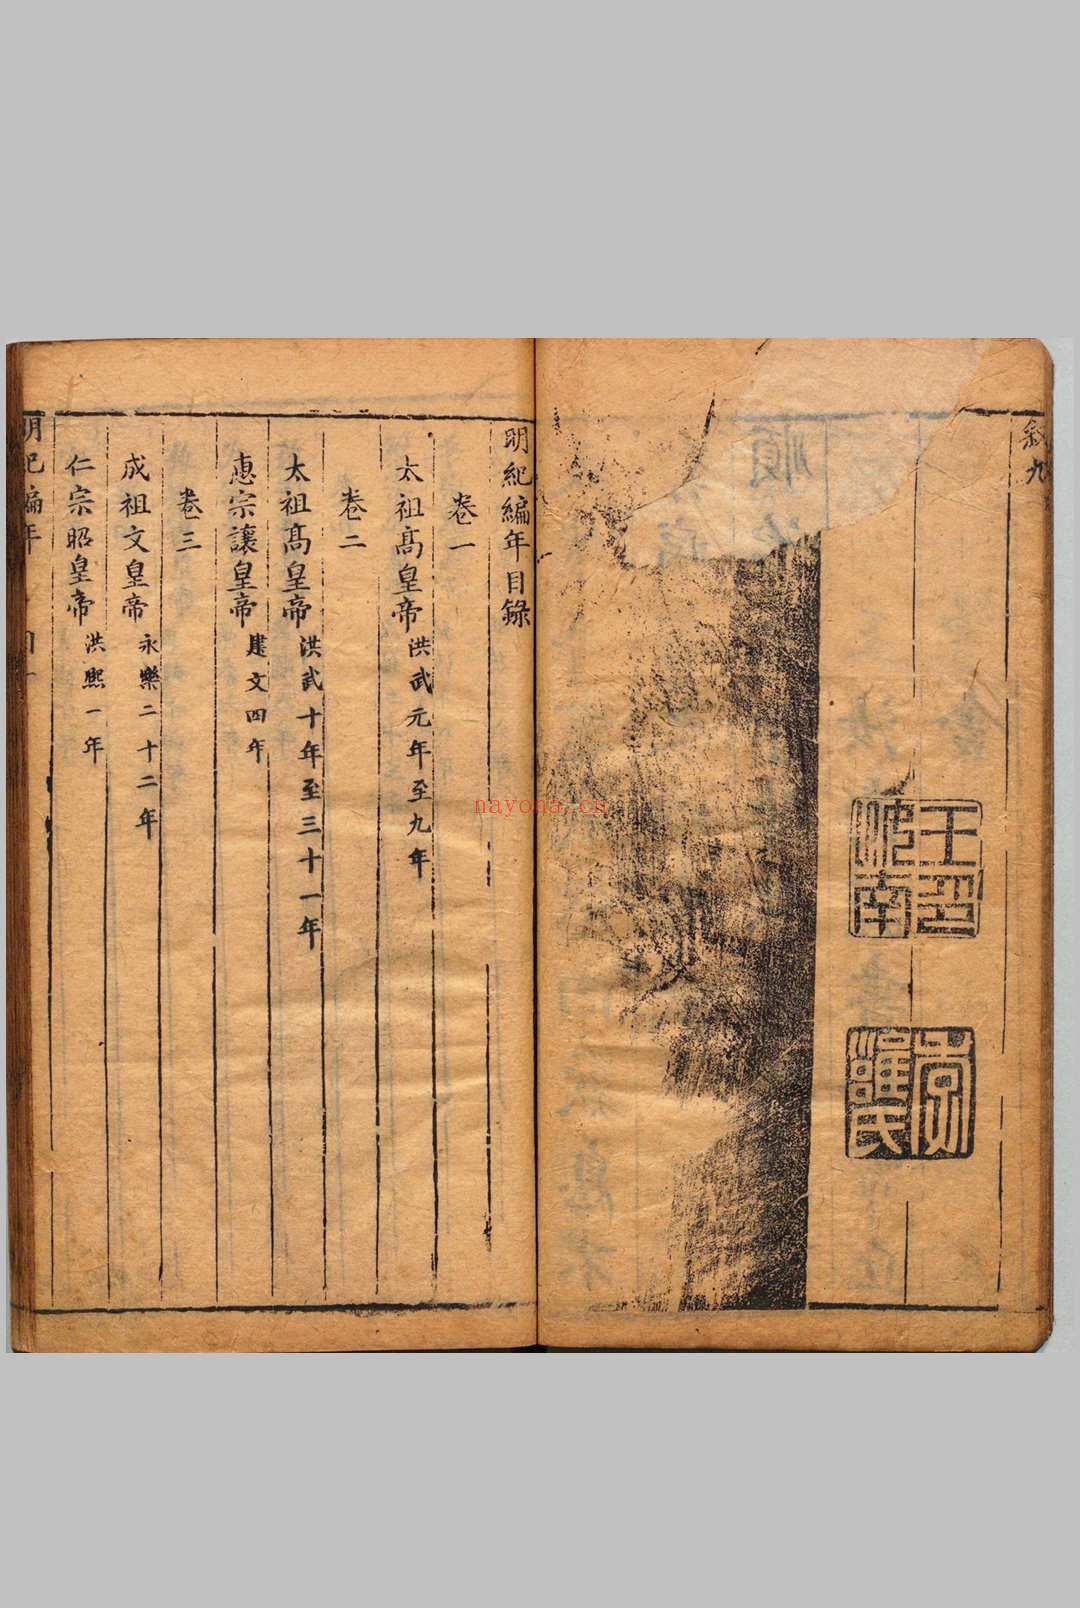 敘九
王印汧南
明紀編年目錄
卷一
太祖高皇帝 洪武元年至九年
卷二
太祖高皇帝 洪武十年至三十一年
惠宗讓皇帝 建文四年
卷三
成祖文皇帝 永樂二十二年
仁宗昭皇帝 洪熙一年
明紀編年
nayona.cn